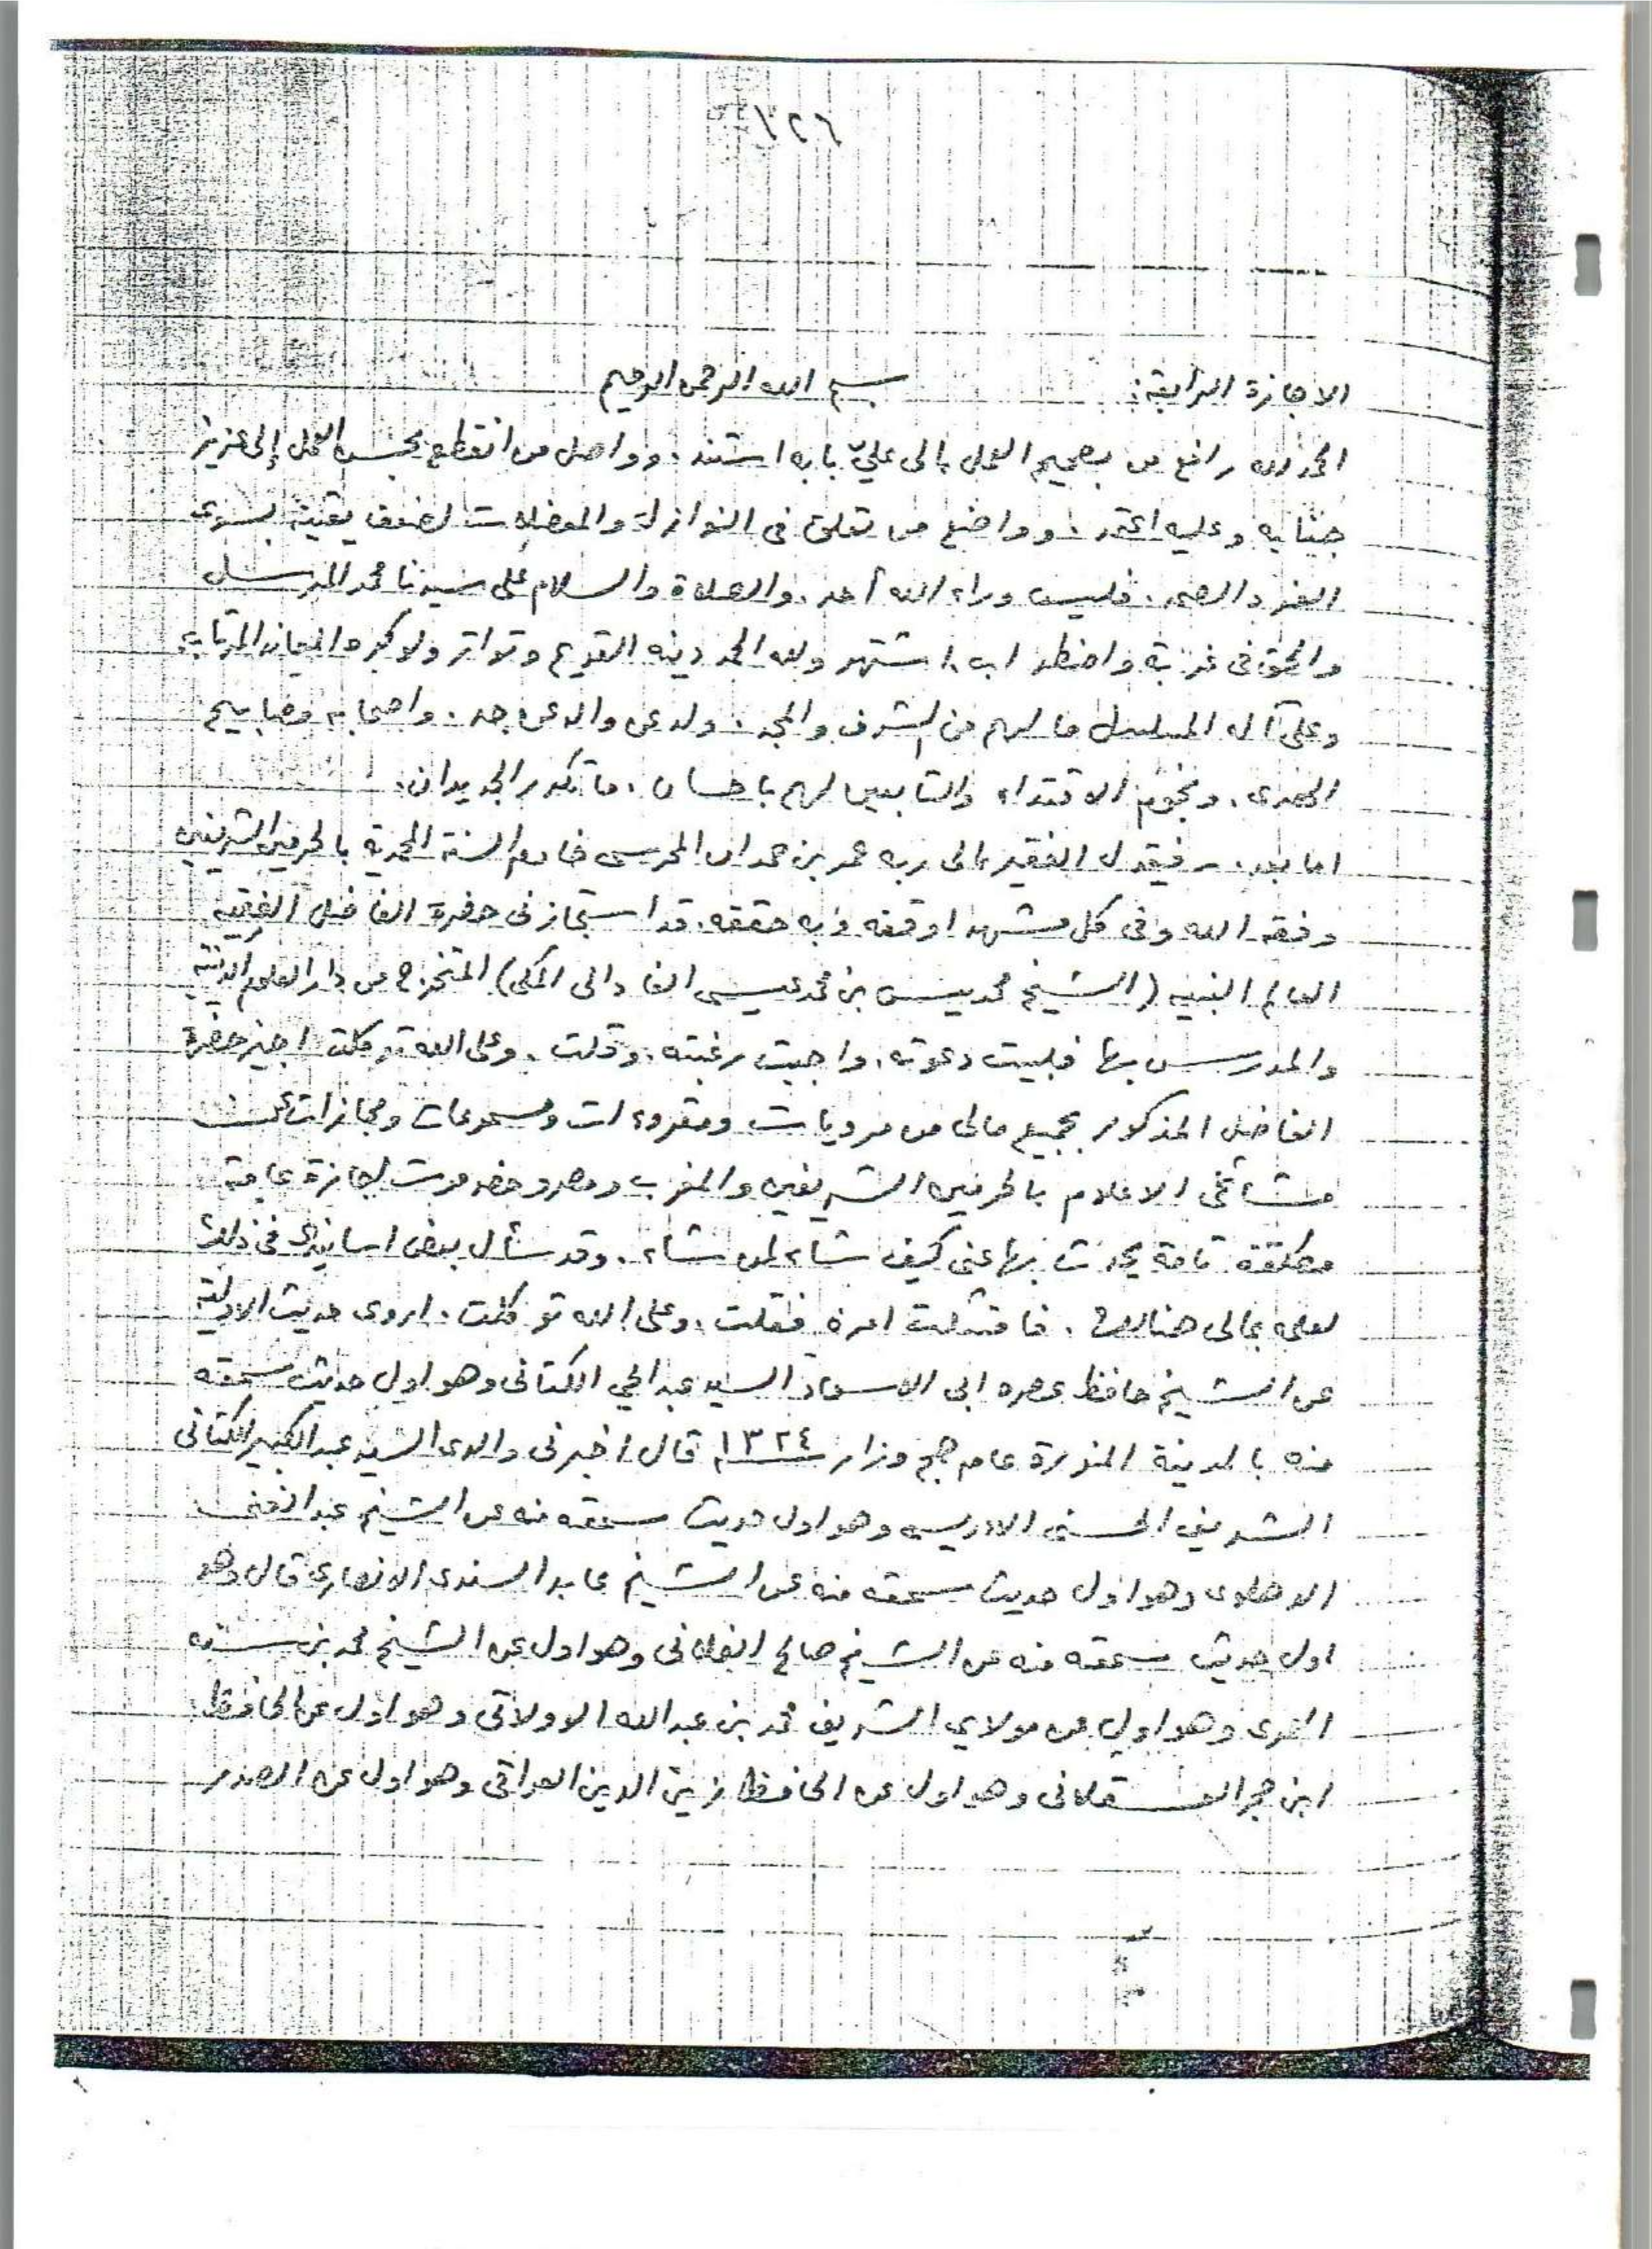 ١٢٦
الاجازة الرابعة: بسم الله الرحمن الرحيم
الحمد لله رافع من بصحيح العمل الى عليّ بابه استند. وواصل من انقطع بحسن العمل إلى عزيز
جنابه وعليه اعتمد. وواضع من تعلق في النوازل والمعضلات لضعف يقينه بسوى
الفرد الصمد. فليس وراء الله أحد. والصلاة والسلام على سيدنا محمد المرسل
والحق في غربة واضطراب. اشتهر ولله الحمد دينه القويم وتواتر ولو كره المعاند المرتاب.
وعلى آله المسلسل ما لهم من الشرف والمجد. ولد عن والد عن جد. واصحابه مصابيح
الهدى. ونجوم الاقتداء والتابعين لهم باحسان. ما تكرر الجديدان.
اما بعد. فيقول الفقير الى ربه عمر بن حمدان المحرسي خادم السنة المحمدية بالحرمين الشريفين
وفقه الله وفي كل مشهد اوقفه وبه حققه. قد استجازني حضرة الفاضل الفقيه
العالم النبيه (الشيخ محمد يسن بن محمد عيسى الفاداني المكي) المتخرج من دار العلوم الدينية
والمدرس بها فلبيت دعوته. واجبت رغبته. وقلت. وعلى الله توكلت اجيز حضرة
الفاضل المذكور بجميع مالي من مرويات ومقروءات ومسموعات ومجازات عن
مشائخي الاعلام بالحرمين الشريفين والمغرب ومصر وحضرموت اجازة عامة
مطلقة تامة يحدث بها عني كيف شاء لمن شاء. وقد سأل بعض اسانيدي في ذلك
لعلمه بمالي هنالك. فامتثلت امره. فقلت. وعلى الله توكلت. اروى حديث الاولية
عن الشيخ حافظ عصره ابي الاسعاد السيد عبد الحي الكتاني وهو اول حديث سمعته
منه بالمدينة المنورة عام حج وزار ١٣٢٤ قال اخبرني والدي السيد عبد الكبير الكتاني
الشريف الحسني الادريسي وهو اول حديث سمعته منه عن الشيخ عبد الغني
الدهلوي وهو اول حديث سمعته منه عن الشيخ عابد السندي الانصاري قال وهو
اول حديث سمعته منه عن الشيخ صالح الفلاني وهو اول عن الشيخ محمد بن سنه
العمري وهو اول عن مولاي الشريف محمد بن عبد الله الاولاتي وهو اول عن الحافظ
ابن حجر العسقلاني وهو اول عن الحافظ زين الدين العراقي وهو اول عن الصدر